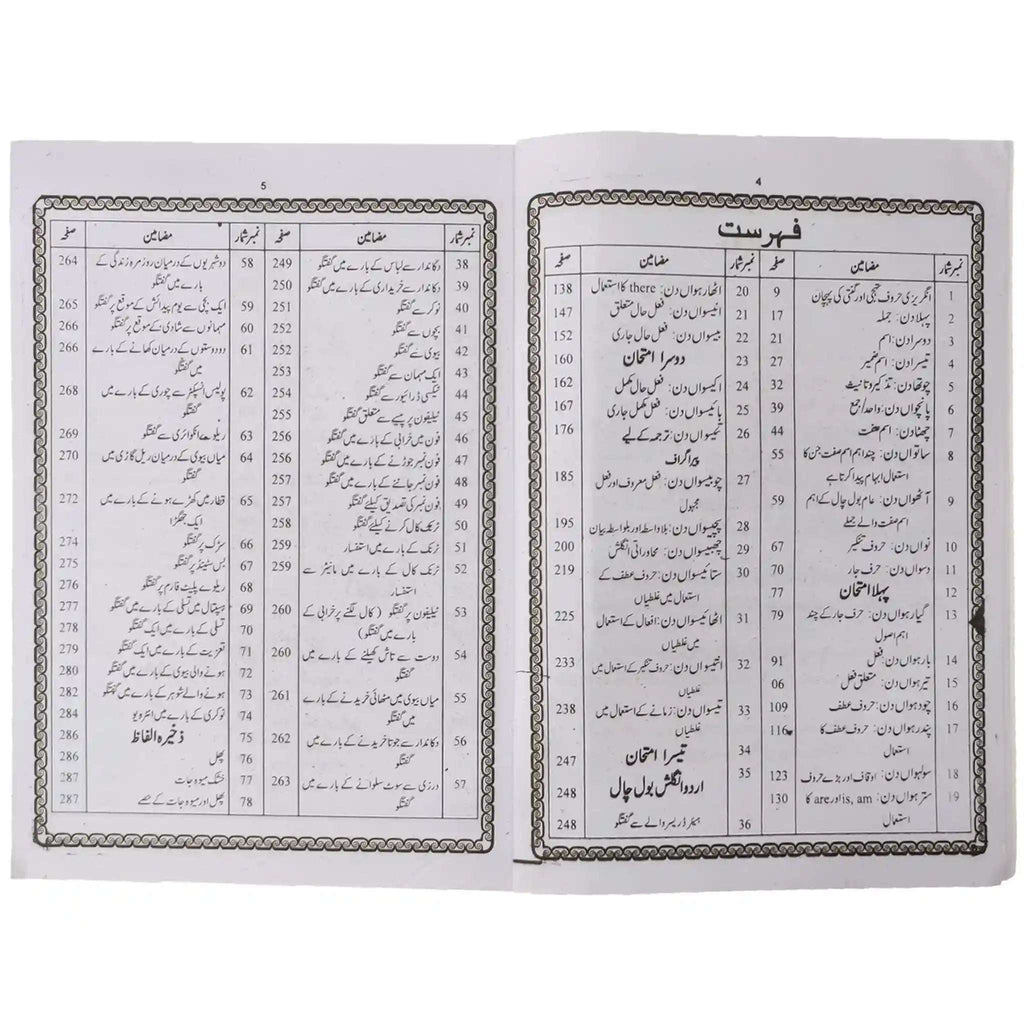 4
فہرست
نمبر شمار مضامین صفحہ
1 انگریزی حروف تہجی اور گنتی کی پہچان 9
2 پہلا دن: جملہ 17
3 دوسرا دن: اسم 21
4 تیسرا دن: اسم ضمیر 27
5 چوتھا دن: تذکیر و تانیث 32
6 پانچواں دن: واحد/جمع 39
7 چھٹا دن: اسم صفت 44
8 ساتواں دن: چند اہم اسم صفت جن کا 55
استعمال ابہام پیدا کرتا ہے
9 آٹھواں دن: عام بول چال کے اہم 59
اسم صفت والے جملے
10 نواں دن: حروف تنکیر 67
11 دسواں دن: حروف جار 70
12 پہلا امتحان 77
13 گیارہواں دن: حرف جار کے چند 79
اہم اصول
14 بارہواں دن: فعل 91
15 تیرہواں دن: متعلق فعل 06
16 چودہواں دن: حروف عطف 109
17 پندرہواں دن: حروف عطف کا 116
استعمال
18 سولہواں دن: اوقاف اور بڑے حروف 123
19 سترہواں دن: is, am اور are کا 130
استعمال
نمبر شمار مضامین صفحہ
20 اٹھارہواں دن: there کا استعمال 138
21 انیسواں دن: فعل حال متعلق 147
22 بیسواں دن: فعل حال جاری 152
23 دوسرا امتحان 160
24 اکیسواں دن: فعل حال مکمل 162
25 بائیسواں دن: فعل مکمل جاری 167
26 تئیسواں دن: ترجمہ کے لیے 176
پیراگراف
27 چوبیسواں دن: فعل معروف اور فعل 185
مجہول
28 پچیسواں دن: بلاواسطہ اور بلواسطہ بیان 195
29 چھبیسواں دن: محاوراتی انگلش 200
30 ستائیسواں دن: حروف عطف کے 219
استعمال میں غلطیاں
31 اٹھائیسواں دن: افعال کے استعمال 225
میں غلطیاں
32 انتیسواں دن: حروف تنکیر کے استعمال میں 233
غلطیاں
33 تیسواں دن: زمانے کے استعمال میں 238
غلطیاں
34 تیسرا امتحان 247
35 اردو انگلش بول چال 248
36 ہیئر ڈریسر والے سے گفتگو 248
5
نمبر شمار مضامین صفحہ
38 دکاندار سے لباس کے بارے میں گفتگو 249
39 دکاندار سے خریداری کے بارے میں گفتگو 250
40 نوکر سے گفتگو 251
41 بچوں سے گفتگو 252
42 بیوی سے گفتگو 252
43 ایک مہمان سے گفتگو 253
44 ٹیکسی ڈرائیور سے گفتگو 254
45 ٹیلیفون پر پیسے سے متعلق گفتگو 255
46 فون میں خرابی کے بارے میں گفتگو 256
47 فون نمبر جوڑنے کے بارے میں گفتگو 256
48 فون نمبر جاننے کے بارے میں گفتگو 257
49 فون نمبر کی تصدیق کیلئے گفتگو 257
50 ٹرنک کال کرنے کیلئے گفتگو 258
51 ٹرنک کے بارے میں استفسار 259
52 ٹرنک کال کے بارے میں مانیٹر سے 259
استفسار
53 ٹیلیفون پر گفتگو (کال لگنے پر خرابی کے 260
بارے میں گفتگو)
54 دوست سے تاش کھیلنے کے بارے میں 260
گفتگو
55 میاں بیوی میں مٹھائی خریدنے کے بارے 261
میں گفتگو
56 دکاندار سے جوتا خریدنے کے بارے میں 262
گفتگو
57 درزی سے سوٹ سلوانے کے بارے میں 263
گفتگو
نمبر شمار مضامین صفحہ
58 دو شہریوں کے درمیان روز مرہ زندگی کے 264
بارے میں گفتگو
59 ایک بچی سے یوم پیدائش کے موقع پر گفتگو 265
60 مہمانوں سے شادی کے موقع پر گفتگو 266
61 دو دوستوں کے درمیان کھانے کے بارے 266
میں گفتگو
62 پولیس انسپکٹر سے چوری کے بارے میں 268
گفتگو
63 ریلوے انکوائری سے گفتگو 269
64 میاں بیوی کے درمیان ریل گاڑی میں 270
گفتگو
65 قطار میں کھڑے ہونے کے بارے میں 272
ایک جھگڑا
66 سڑک پر گفتگو 274
67 بس سٹینڈ پر گفتگو 275
68 ریلوے پلیٹ فارم پر گفتگو 276
69 ہسپتال میں تسلی کے بارے میں گفتگو 277
70 تسلی کے بارے میں ایک گفتگو 278
71 تعزیت کے بارے میں ایک گفتگو 279
72 ہونے والی بیوی کے بارے میں گفتگو 280
73 ہونے والے شوہر کے بارے میں گفتگو 282
74 نوکری کے بارے میں انٹرویو 284
75 ذخیرہ الفاظ 286
76 پھل 286
77 خشک میوہ جات 287
78 پھل اور میوہ جات کے حصے 287